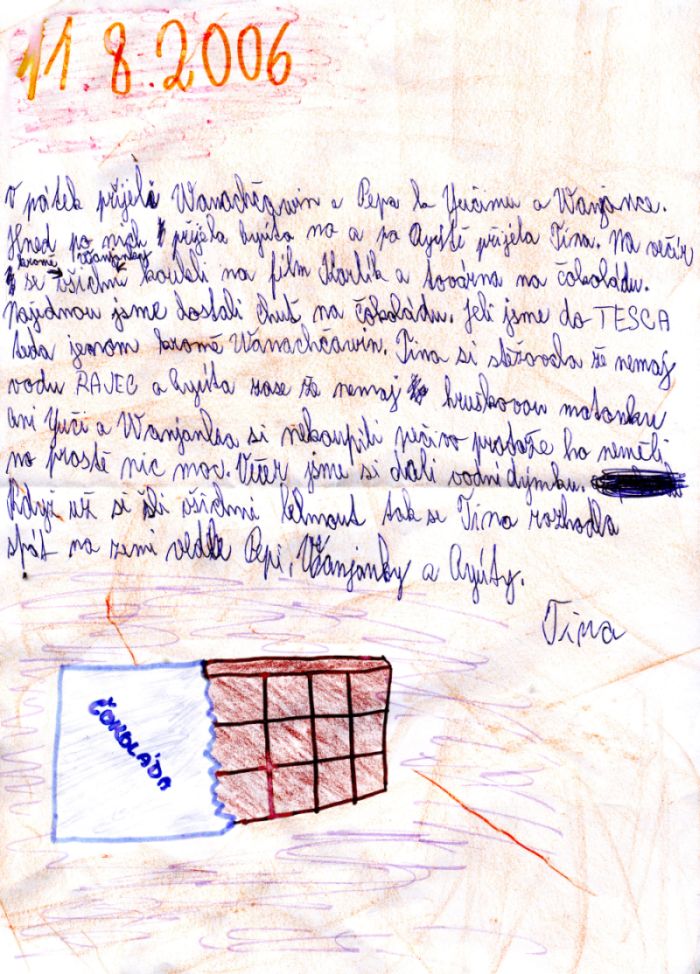 11.8.2006
V pátek přijeli Wanachčawin a Pepa k Yučimu a Wanjance.
Hned po nich přijela Ayúta no a po Ayútě přijela Tina. Na večír
kromě Wanjanky
se všichni koukli na film Karlík a továrna na čokoládu.
Najednou jsme dostali chuť na čokoládu. Jeli jsme do TESCA
teda jenom kromě Wanachčawin. Tina si stěžovala že nemaj
vodu RAJEC a Ayúta zase že nemaj hruškovou matonku
ani Yuči a Wanjanka si nekoupili pečivo protože ho neměli
no prostě nic moc. Večer jsme si dali vodní dýmku.
Když už si šli všichni lehnout tak se Tina rozhodla
spát na zemi vedle Pepi, Wanjanky a Ayúty.
Tina
ČOKOLÁDA